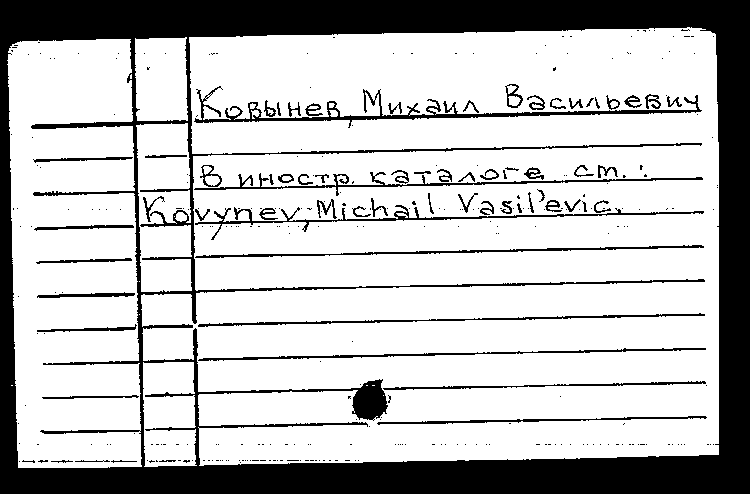 Ковынев, Михаил Васильевич
В иностр. каталоге ст.:
Kovynev, Michail Vasil'evic.